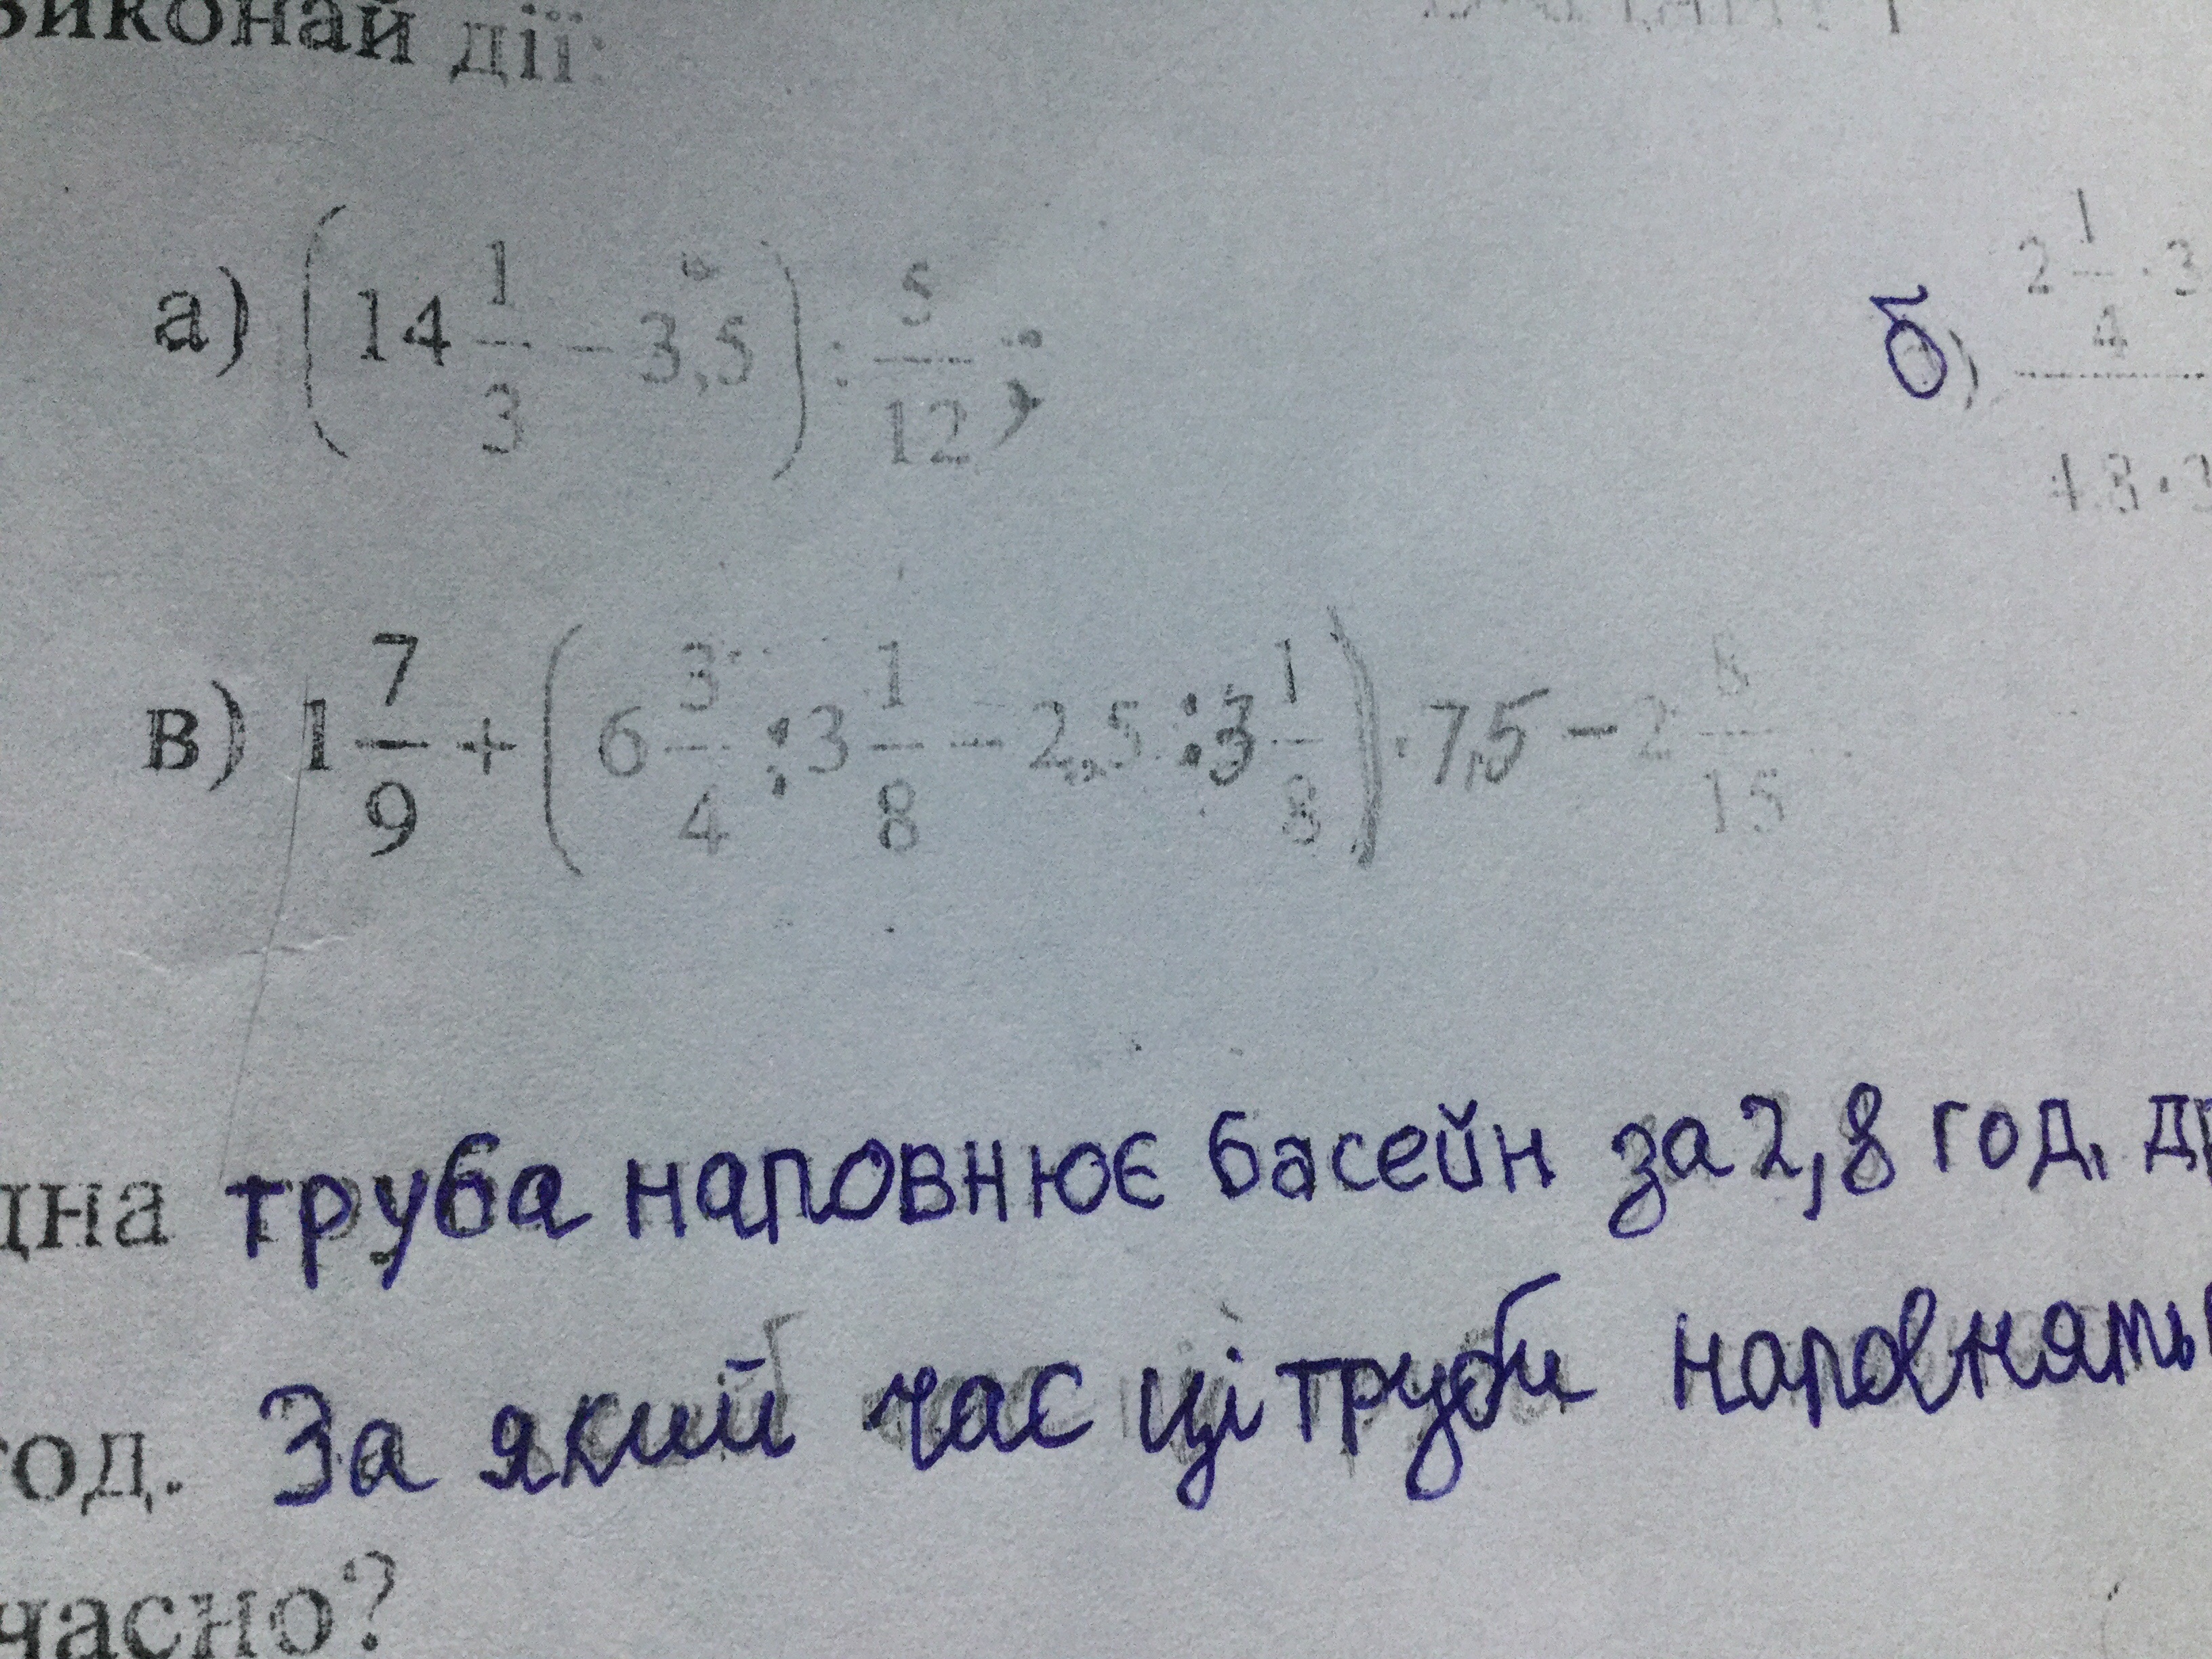 Виконай дії:
а) (14 1/3 − 3,5) : 5/12;
б) 2 1/4 · 3
4,8 · 3
в) 1 7/9 + (6 3/4 : 3 1/8 − 2,5 : 3 1/8) · 7,5 − 2 8/15
дна труба наповнює басейн за 2,8 год, др
год. За який час ці труби наповнять
часно?